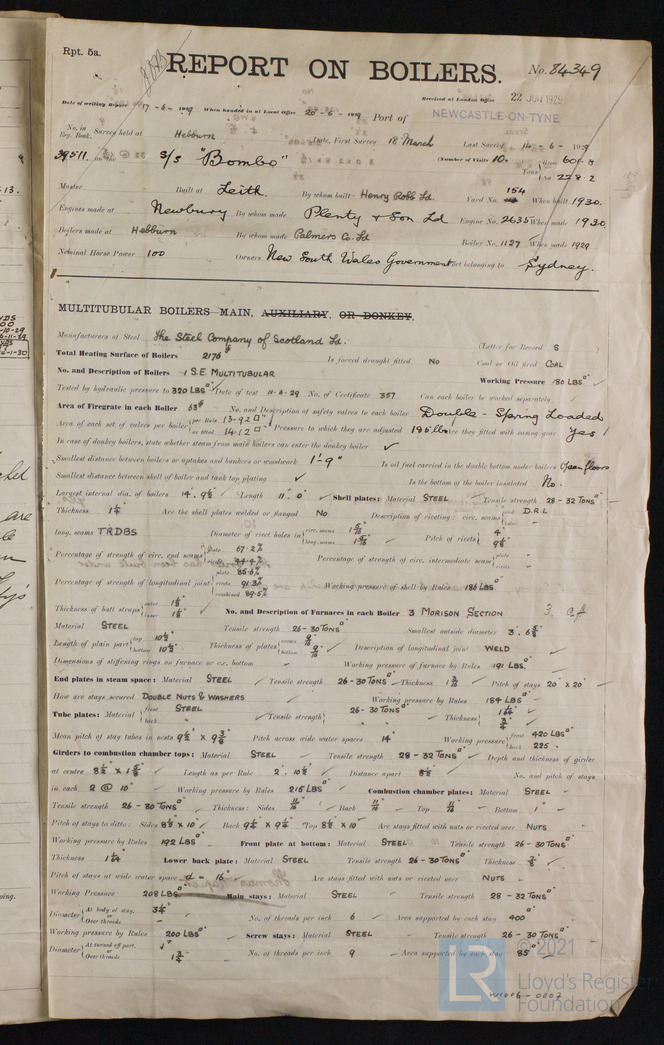 Rpt. 5a.
REPORT ON BOILERS.
No. 84349
Received at London Office 22 JUN 1929
Date of writing Report 17-6-1929 When handed in at Local Office 20-6-1929 Port of NEWCASTLE-ON-TYNE
No. in Reg. Book. Survey held at Hebburn Date, First Survey 18 March Last Survey 14-6-1929
39511. on the S/S "Bombo" (Number of Visits 10 Gross
Tons Net
Master Built at Leith. By whom built Henry Robb Ld. Yard No. 154 When built 1930.
Engines made at Newbury By whom made Plenty & Son Ld Engine No. 2635 When made 1930
Boilers made at Hebburn By whom made Palmers Co. Ld Boiler No. 1127 When made 1929
Nominal Horse Power 100 Owners New South Wales Government Port belonging to Sydney.
MULTITUBULAR BOILERS MAIN, AUXILIARY, OR DONKEY.
Manufacturers of Steel The Steel Company of Scotland Ld. (Letter for Record S )
Total Heating Surface of Boilers 2176 Is forced draught fitted No Coal or Oil fired COAL
No. and Description of Boilers 1 S.E. MULTITUBULAR Working Pressure 180 LBS
Tested by hydraulic pressure to 320 LBS Date of test 11-6-29 No. of Certificate 357 Can each boiler be worked separately
Area of Firegrate in each Boiler 63 No. and Description of safety valves to each boiler Double - Spring Loaded
Area of each set of valves per boiler per Rule 13.92 as fitted 14.12 Pressure to which they are adjusted 185 lbs Are they fitted with easing gear Yes
In case of donkey boilers, state whether steam from main boilers can enter the donkey boiler ✓
Smallest distance between boilers or uptakes and bunkers or woodwork 1'-9" Is oil fuel carried in the double bottom under boilers Open floors
Smallest distance between shell of boiler and tank top plating ✓ Is the bottom of the boiler insulated No.
Largest internal dia. of boilers 14'. 9⅝" Length 11'. 0" Shell plates: Material STEEL Tensile strength 28-32 TONS
Thickness Are the shell plates welded or flanged No Description of riveting: circ. seams end D.R.L
long. seams TRDBS Diameter of rivet holes in circ. seams long. seams Pitch of rivets 4"
Percentage of strength of circ. end seams plate 67.2% rivets Percentage of strength of circ. intermediate seam plate rivets
Percentage of strength of longitudinal joint plate 85.6% rivets 91.3% combined 89.5% Working pressure of shell by Rules 186 LBS
Thickness of butt straps outer inner No. and Description of Furnaces in each Boiler 3 MORISON SECTION
Material STEEL Tensile strength 26-30 TONS Smallest outside diameter
Length of plain part top 10½" bottom 10½" Thickness of plates crown bottom Description of longitudinal joint WELD
Dimensions of stiffening rings on furnace or c.c. bottom Working pressure of furnace by Rules 191 LBS.
End plates in steam space: Material STEEL Tensile strength 26-30 TONS Thickness Pitch of stays 20" x 20"
How are stays secured DOUBLE NUTS & WASHERS Working pressure by Rules 184 LBS
Tube plates: Material front back STEEL Tensile strength 26-30 TONS Thickness
Mean pitch of stay tubes in nests 9½" x 9⅜" Pitch across wide water spaces 14" Working pressure front 420 LBS back 225
Girders to combustion chamber tops: Material STEEL Tensile strength 28-32 TONS Depth and thickness of girder
at centre Length as per Rule 2'. 10½" Distance apart No. and pitch of stays
in each 2 @ 10" Working pressure by Rules 215 LBS Combustion chamber plates: Material STEEL
Tensile strength 26-30 TONS Thickness: Sides 11/16" Back 11/16" Top 11/16" Bottom 1"
Pitch of stays to ditto: Sides 8½" x 10" Back 9¼" x 9¼" Top 8½" x 10" Are stays fitted with nuts or riveted over NUTS
Working pressure by Rules 192 LBS Front plate at bottom: Material STEEL Tensile strength 26-30 TONS
Thickness Lower back plate: Material STEEL Tensile strength 26-30 TONS Thickness
Pitch of stays at wide water space 16" Are stays fitted with nuts or riveted over NUTS
Working Pressure 208 LBS Main stays: Material STEEL Tensile strength 28-32 TONS
Diameter At body of stay, or Over threads 3¼" No. of threads per inch 6 Area supported by each stay 400
Working pressure by Rules 200 LBS Screw stays: Material STEEL Tensile strength 26-30 TONS
Diameter At turned off part, or Over threads 1¾" No. of threads per inch 9 Area supported by each stay 85
LR © 2021
Lloyd's Register
Foundation